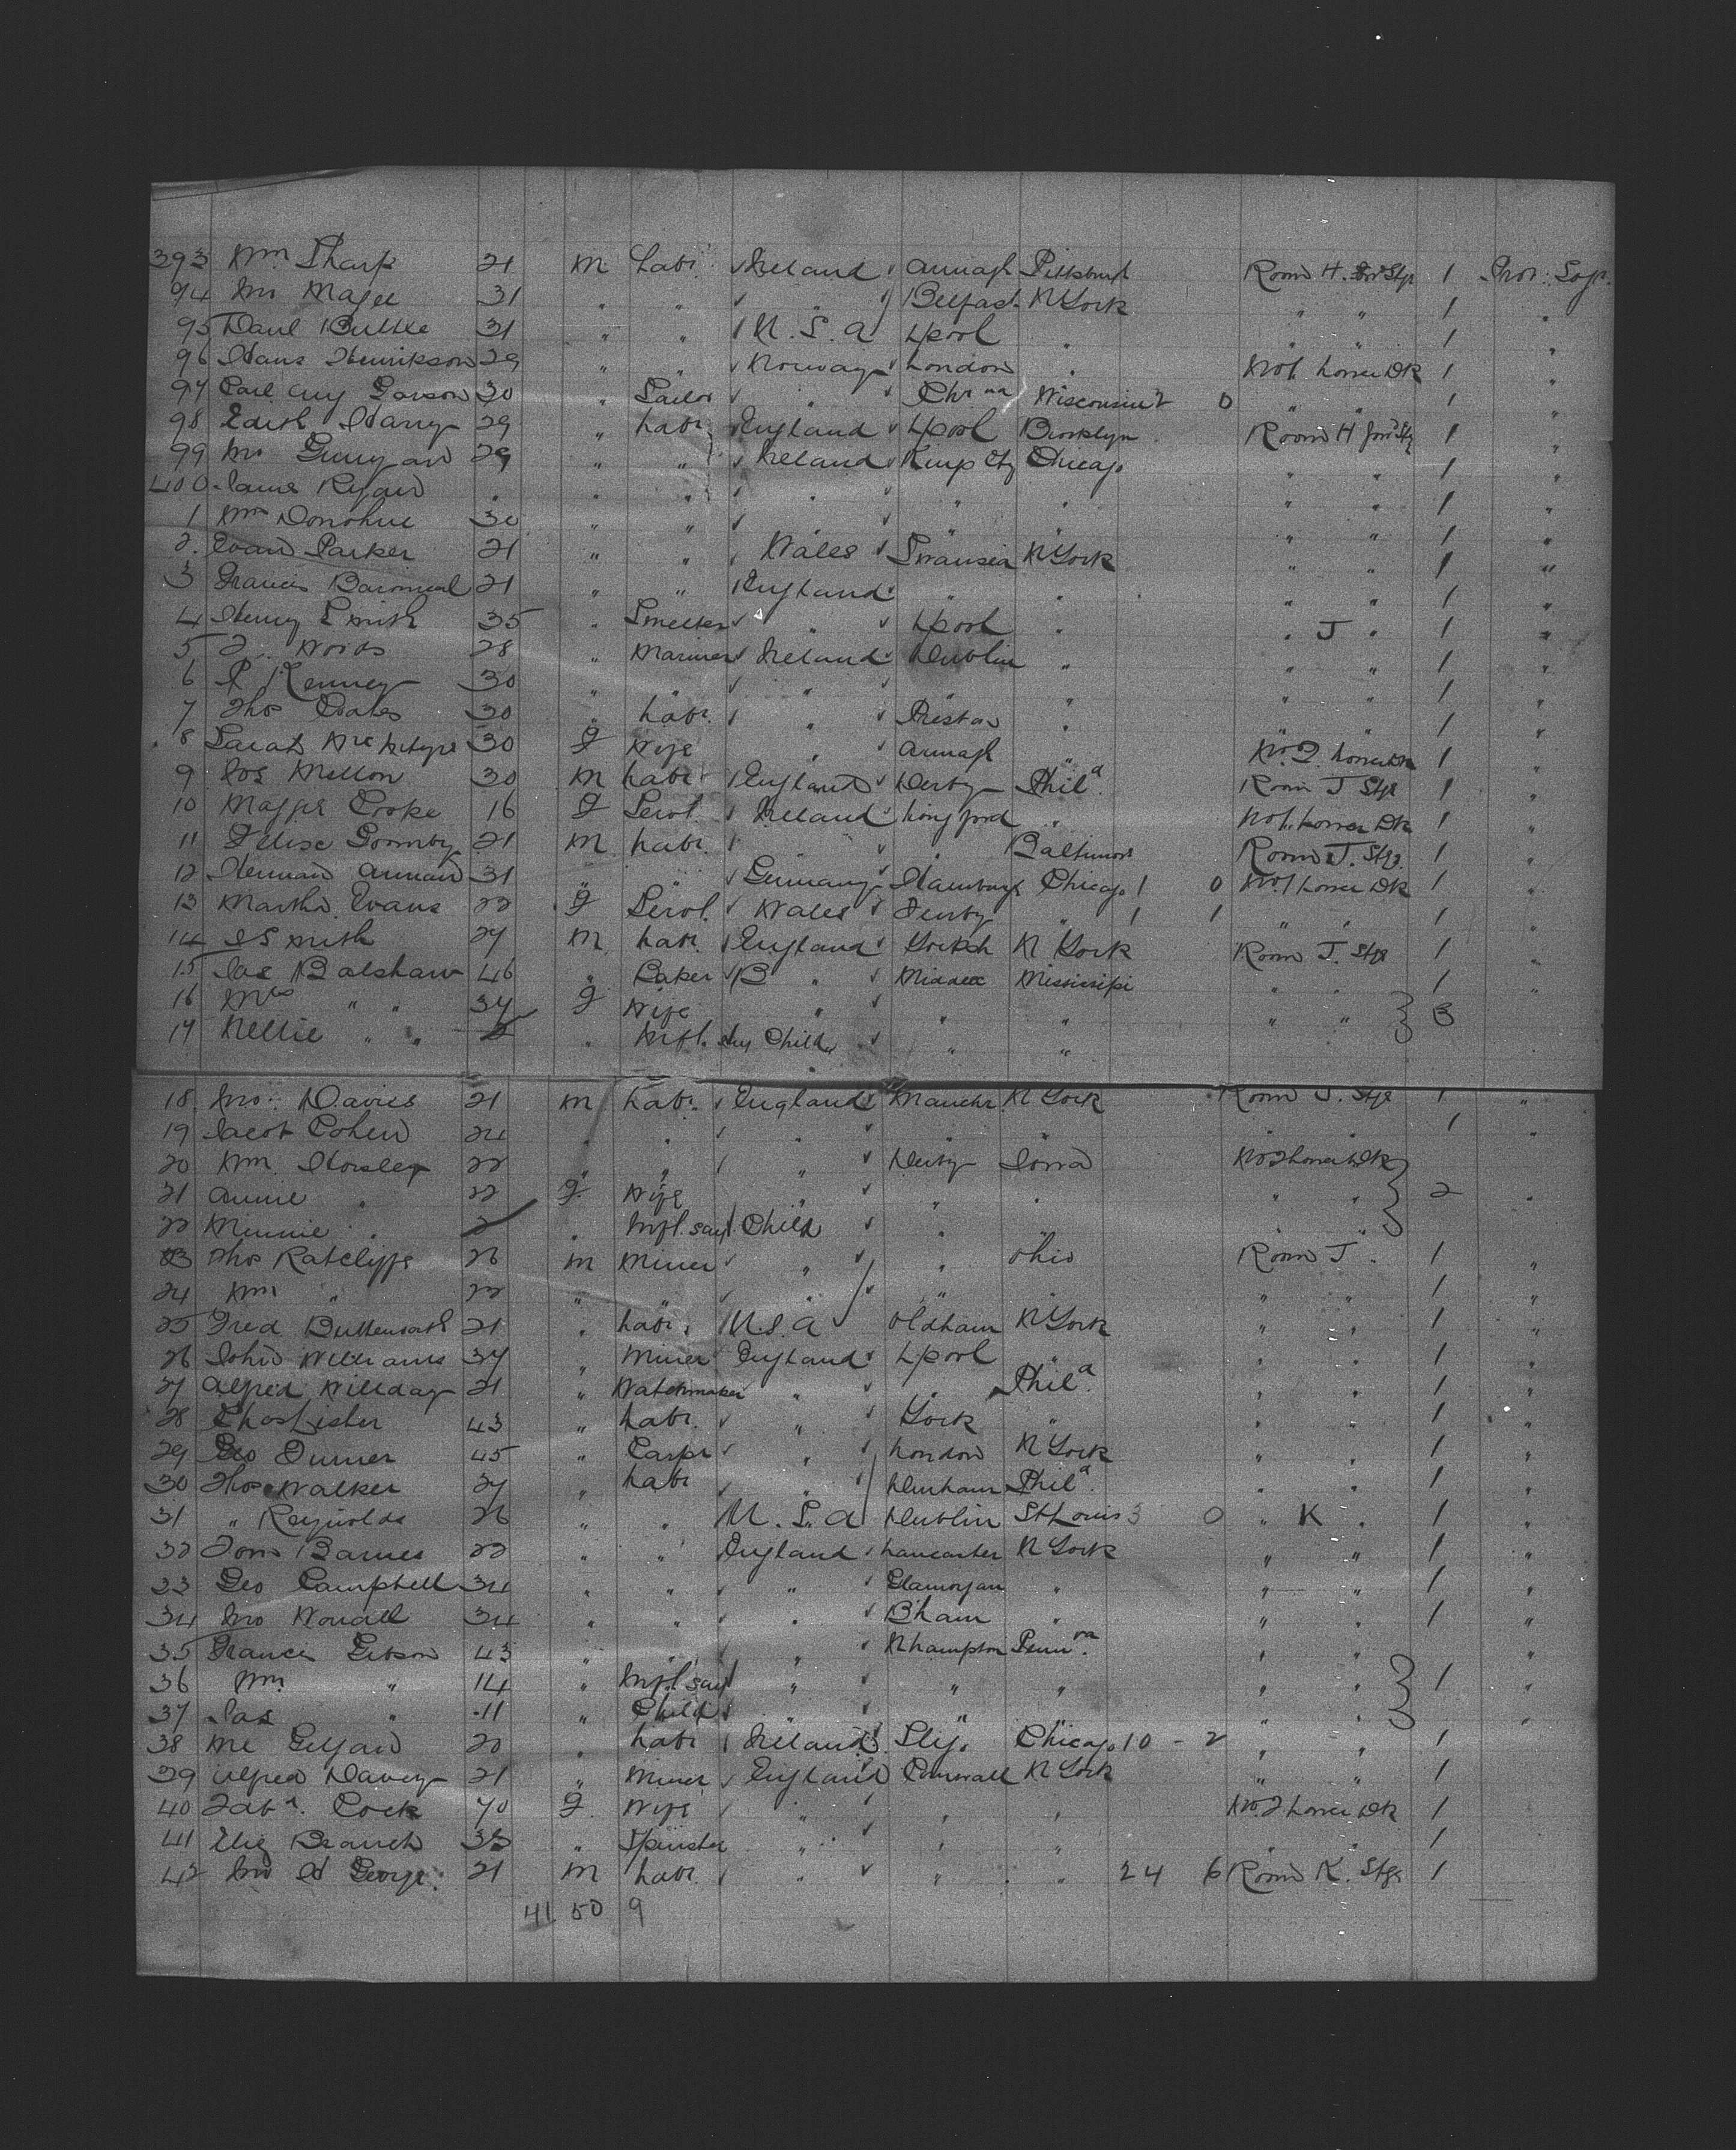 393 Wm Sharp 21 m Labr. Ireland Armagh Pittsburgh Room H. Stge 1 Prot: Sojr.
94 Jno Magee 31 " " " Belfast N York " " 1 "
95 Danl Buttle 31 " " U. S. A L'pool " " " 1 "
96 Hans Henrikson 29 " " Norway London " No 1 Lower Dk 1 "
97 Carl Aug 30 " Sailor " Chr na Wisconsin 2 0 " " 1 "
98 Edith Harry 29 " Labr England L'pool Brooklyn Room H 1 "
99 29 " " Ireland Kings Cty Chicago " " 1 "
400 James Ryan " " " " " " " " 1 "
1 Wm Donohue 30 " " " " " " " 1 "
2. Evan Parker 21 " " Wales Swansea N York " " 1 "
3 Francis 21 " " England " " " " 1 "
4 Henry Smith 35 " Smelter " L'pool " " J " 1 "
5 Woods 28 " Mariner Ireland Dublin " " " 1 "
6 P Kenney 30 " " " " " " " 1 "
7 Thos Coates 30 " Labr. " Preston " " " 1 "
8 Sarah McIntyre 30 f Wife " Armagh " No. 2. Lower Dk 1 "
9 Jos Mellon 30 m Labr England Derby Phila. Room J Stge 1 "
10 Maggie Cooke 16 f Servt. Ireland Longford " No 1. Lower Dk 1 "
11 Gormby 21 m Labr. " " Baltimore Room J. Stge 1 "
12 Herman 31 " " Germany Hamburg Chicago 1 0 No 1 Lower Dk 1 "
13 Martha Evans 22 f Servt. Wales " 1 1 " " 1 "
14 J Smith 27 m Labr. England Yorksh N York Room J. Stge 1 "
15 Jas Balshaw 46 " Baker B " Middex Mississipi " " 1 "
16 Mrs " " 34 f Wife " " " " " } 3
17 Nellie " " 2 " Child " " "
18. Jno. Davies 21 m Labr. England Manchr. N York Room J. Stge 1 "
19 Jacob Cohen 24 " " " " " " " 1 "
20 Wm. Horsley 22 " " " Derby Iowa No 2 Lower Dk }
21 Annie " 22 f Wife " " " " " } 2 "
22 Minnie " 2 " Child " " " "
23 Thos Ratcliffe 26 m Miner " " Ohio Room J " 1 "
24 Wm " 22 " " " " " " 1 "
25 Fred Butterworth 21 " Labr. U.S.A Oldham N York " " 1 "
26 John Williams 34 " Miner England L'pool " " " 1 "
27 Alfred Willday 21 " Watchmaker " " Phila. " " 1 "
28 Chas Lister 43 " Labr. " York " " " 1 "
29 Geo Turner 45 " Carpr " London N York " " 1 "
30 Thos Walker 27 " Labr " Durham Phila. " " 1 "
31 " Reynolds 26 " " U. S. A Dublin St Louis 3 0 " K " 1 "
32 Tom Barnes 22 " " England Lancaster N York " " 1 "
33 Geo Campbell 34 " " " Glamorgan " " " 1 "
34 Jno Worrall 34 " " " B'ham " " " 1 "
35 Frances Gibson 43 " " " Nhampton Penn va. " " "
36 Wm. " 14 " " " " " " } 1 "
37 Jas " 11 " Child " " " "
38 20 " Labr Ireland Sligo Chicago 10 - 2 " " 1
39 Alfred Davey 21 " Miner England Cornwall N York " " 1
40 Cock 70 f Wife " " " No. 2 Lower Dk 1
41 Eliz Branch 33 " Spinster " " " " " 1
42 Jno H George. 21 m Labr. " " " 24 6 Room K. Stge 1
41 50 9